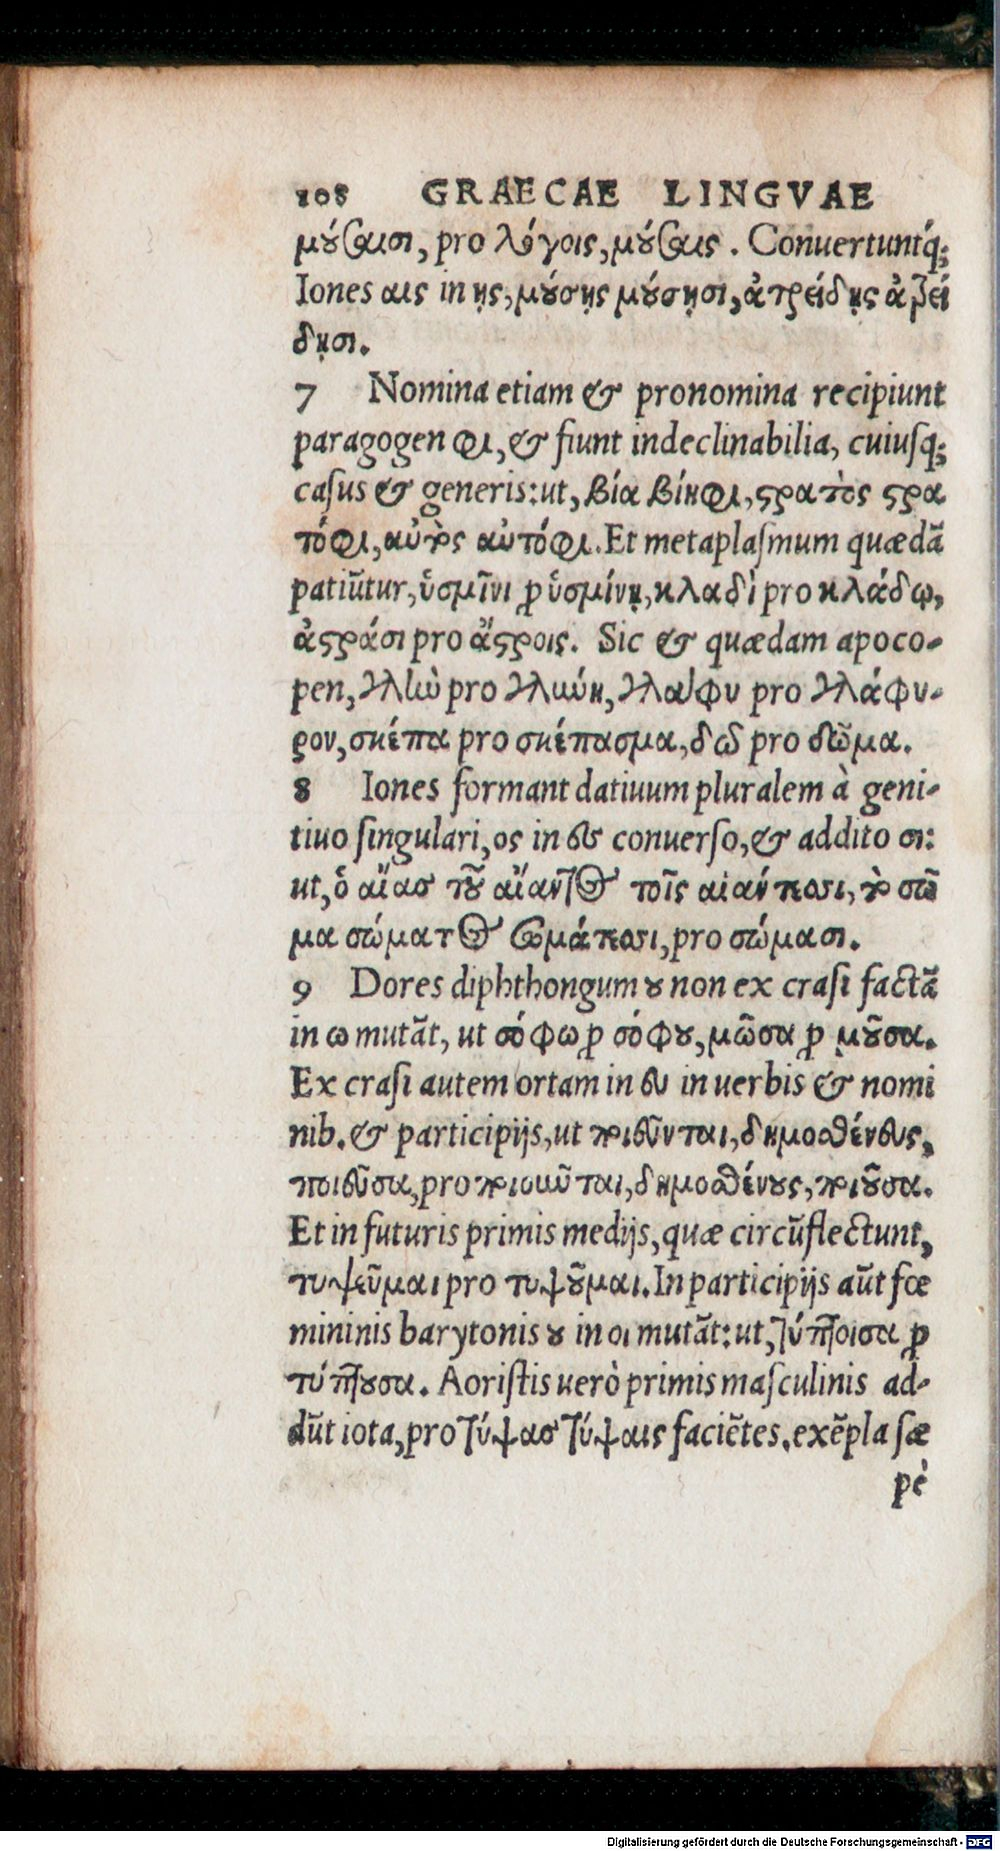 108 GRAECAE LINGVAE
μούσαισι, pro λόγοις, μούσαις. Conuertuntq́;
Iones αις in ῃς, μούσῃς μούσῃσι, ἀτρείδῃς ἀτρεί
δῃσι.
7 Nomina etiam & pronomina recipiunt
paragogen φι, & fiunt indeclinabilia, cuiusq;
casus & generis: ut, βία βίηφι, στρατὸς στρα
τόφι, αὐτὸς αὐτόφι. Et metaplasmum quædā
patiūtur, ὑσμῖνι ꝓ ὑσμίνῃ, κλαδὶ pro κλάδῳ,
ἀστράσι pro ἄστροις. Sic & quædam apoco-
pen, γλαὺ pro γλαύκη, γλάφυ pro γλάφυ-
ρον, σκέπα pro σκέπασμα, δῶ pro δῶμα.
8 Iones formant datiuum pluralem à geni-
tiuo singulari, ος in ες conuerso, & addito σι:
ut, ὁ αἴας τοῦ αἴαντος τοῖς αἰάντεσι, τὸ σῶ
μα σώματος σωμάτεσι, pro σώμασι.
9 Dores diphthongum ου non ex crasi factā
in ω mutāt, ut σόφω ꝓ σόφου, μῶσα ꝓ μοῦσα.
Ex crasi autem ortam in ευ in uerbis & nomi
nib. & participijs, ut ποιεῦνται, δημοσθένευς,
ποιεῦσα, pro ποιοῦνται, δημοσθένους, ποιοῦσα.
Et in futuris primis medijs, quæ circūflectunt,
τυψεῦμαι pro τυψοῦμαι. In participijs aūt fœ
mininis barytonis ου in οι mutāt: ut, τύπτοισα ꝓ
τύπτουσα. Aoristis uerò primis masculinis ad-
dūt iota, pro τύψας τύψαις faciētes. exēpla sæ
pè
Digitalisierung gefördert durch die Deutsche Forschungsgemeinschaft - DFG